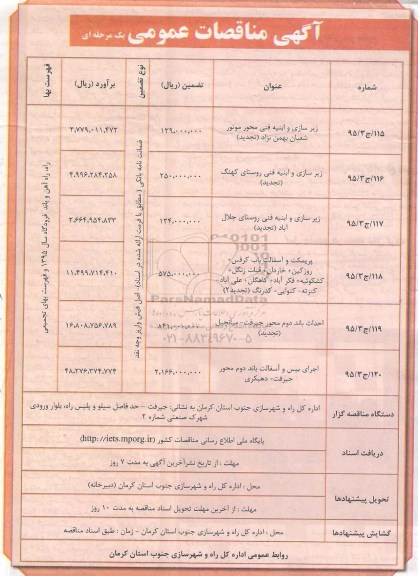 آگهی مناقصات عمومی یک مرحله ای
شماره
عنوان
تضمین (ریال)
نوع تضمین
برآورد (ریال)
فهرست بها
۹۵/۳/ج/۱۱۵
زیر سازی و ابنیه فنی محور موتور
شعبان بهمن نژاد (تجدید)
۱۳۹,۰۰۰,۰۰۰
۲,۷۷۹,۰۱۱,۴۷۲
۹۵/۳/ج/۱۱۶
زیر سازی و ابنیه فنی روستای کهنگ
(تجدید)
۲۵۰,۰۰۰,۰۰۰
۴,۹۹۶,۲۸۴,۲۵۸
۹۵/۳/ج/۱۱۷
زیر سازی و ابنیه فنی روستای جلال
آباد (تجدید)
۱۳۴,۰۰۰,۰۰۰
۲,۶۶۴,۹۵۴,۸۳۳
۹۵/۳/ج/۱۱۸
پریمکت و آسفالت باب گرفس+
۵۷۵,۰۰۰,۰۰۰
۱۱,۴۹۹,۷۱۴,۴۱۰
۹۵/۳/ج/۱۱۹
احداث باند دوم محور جیرفت-
(تجدید)
۸۴۱,۰۰۰,۰۰۰
۱۶,۸۰۸,۷۵۶,۷۸۹
۹۵/۳/ج/۱۲۰
اجرای بیس و آسفالت باند دوم محور
جیرفت- دهبکری
۲,۱۶۶,۰۰۰,۰۰۰
۴۸,۲۷۶,۳۷۴,۷۷۴
ضمانت نامه بانکی (مطابق با فرمت ارائه شده در اسناد)- اصل فیش واریز وجه نقد
راه، راه آهن و باند فرودگاه سال ۱۳۹۵ و فهرست بهای تجمیعی
ParsNamadData
۰۲۱-۸۸۳۴۹۶۷۰-۵
دستگاه مناقصه گزار
اداره کل راه و شهرسازی جنوب استان کرمان به نشانی: جیرفت - حد فاصل سیلو و پلیس راه، بلوار ورودی
شهرک صنعتی شماره ۲
دریافت اسناد
پایگاه ملی اطلاع رسانی مناقصات کشور (http://iets.mporg.ir)
مهلت : از تاریخ نشرآخرین آگهی به مدت ۷ روز
تحویل پیشنهادها
محل : اداره کل راه و شهرسازی جنوب استان کرمان (دبیرخانه)
مهلت : از آخرین مهلت تحویل اسناد مناقصه به مدت ۱۰ روز
گشایش پیشنهادها
محل : اداره کل راه و شهرسازی جنوب استان کرمان - زمان : طبق اسناد مناقصه
روابط عمومی اداره کل راه و شهرسازی جنوب استان کرمان